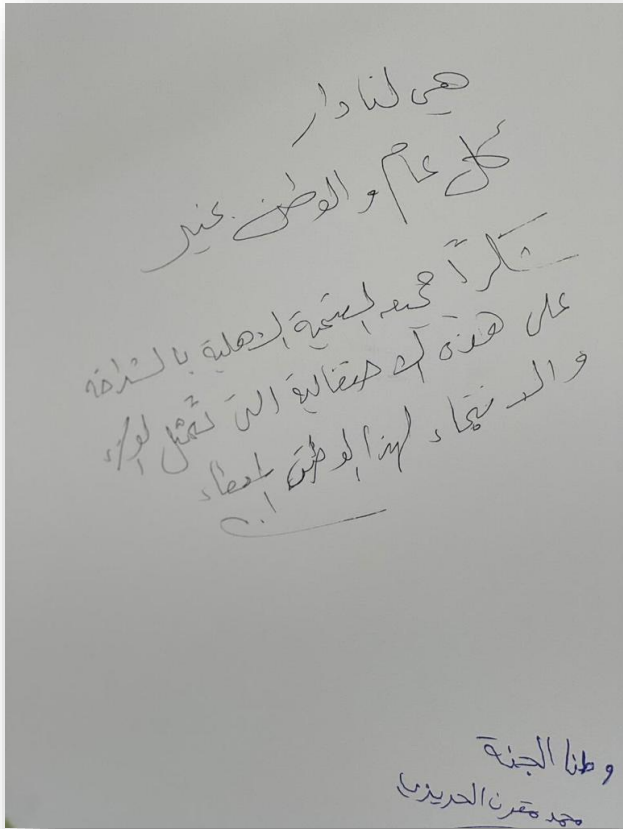 هي لنا دار
كل عام والوطن بخير
شكراً جمعية التنمية الأهلية بالشرافه
على هذه الاحتفالية التي تمثل الولاء
والانتماء لهذا الوطن المعطاء
وطنا الجنة
محمد مقرن الحريزي